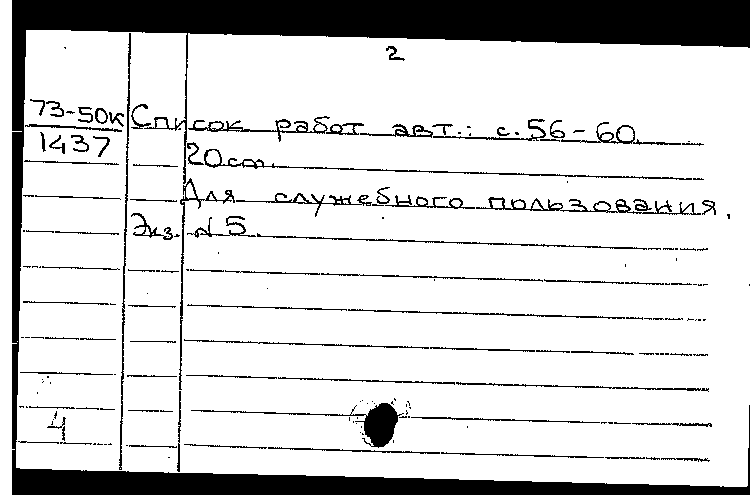 2
73-50к Список работ авт.: с.56-60.
1437 20см.
Для служебного пользования.
Экз. № 5.
4